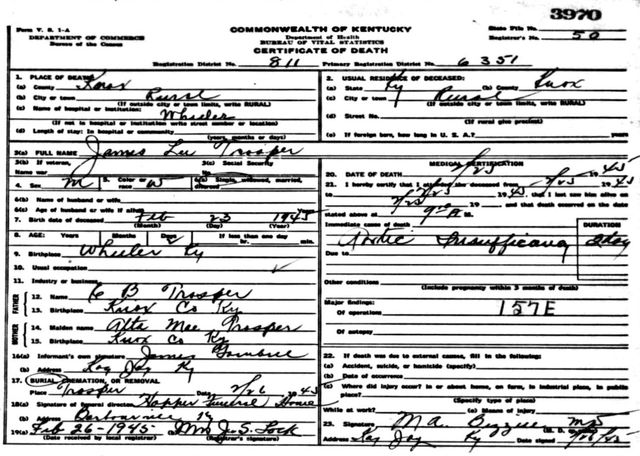 3970
Form V. S. 1-A
DEPARTMENT OF COMMERCE
Bureau of the Census
COMMONWEALTH OF KENTUCKY
Department of Health
BUREAU OF VITAL STATISTICS
CERTIFICATE OF DEATH
State File No.
Registrar's No. 50
Registration District No. 811 Primary Registration District No. 6351
1. PLACE OF DEATH
(a) County Knox
(b) City or town Rural
(If outside city or town limits, write RURAL)
(c) Name of hospital or institution: Wheeler
(If not in hospital or institution write street number or location)
(d) Length of stay: In hospital or community
(years, months or days)
2. USUAL RESIDENCE OF DECEASED:
(a) State Ky (b) County Knox
(c) City or town Rural
(If outside city or town limits, write RURAL)
(d) Street No.
(If rural give precinct)
(e) If foreign born, how long in U. S. A.? years
3(a) FULL NAME James Lee Trosper
3(b) If veteran, Name war
3(c) Social Security No.
4. Sex M 5. Color or race W 6(a) Single, widowed, married, divorced
6(b) Name of husband or wife
6(c) Age of husband or wife if alive
7. Birth date of deceased Feb 23 1945
(Month) (Day) (Year)
8. AGE: Years Months Days 2 If less than one day
hr. min.
9. Birthplace Wheeler Ky
10. Usual occupation
11. Industry or business
FATHER
12. Name C B Trosper
13. Birthplace Knox Co Ky
MOTHER
14. Maiden name Alta Mae Trosper
15. Birthplace Knox Co Ky
16(a) Informant's own signature James
(b) Address Kay Jay Ky
17. BURIAL, CREMATION, OR REMOVAL
Place Trosper Date 2/26 1945
18(a) Signature of funeral director Hopper Funeral Home
(b) Address Barbourville Ky
19(a) Feb 26-1945 Mrs J. S. Lock
(Date received by local registrar) (Registrar's signature)
MEDICAL CERTIFICATION
20. DATE OF DEATH 2/25 1945
21. I hereby certify that I attended the deceased from 2/25 1945
2/25 1945, that I last saw him alive on
2/25 1945, and that death occurred on the date
stated above at 9 M.
Immediate cause of death DURATION
Insufficiency 2 day
Due to
Other conditions
(Include pregnancy within 3 months of death)
Major findings:
Of operations 157E
Of autopsy
22. If death was due to external causes, fill in the following:
(a) Accident, suicide, or homicide (specify)
(b) Date of occurrence
(c) Where did injury occur? In or about home, on farm, in industrial place, in public
place?
(Specify type of place)
While at work? (e) Means of injury
23. Signature M A MD
Address Kay Jay Ky Date signed 2/26/45